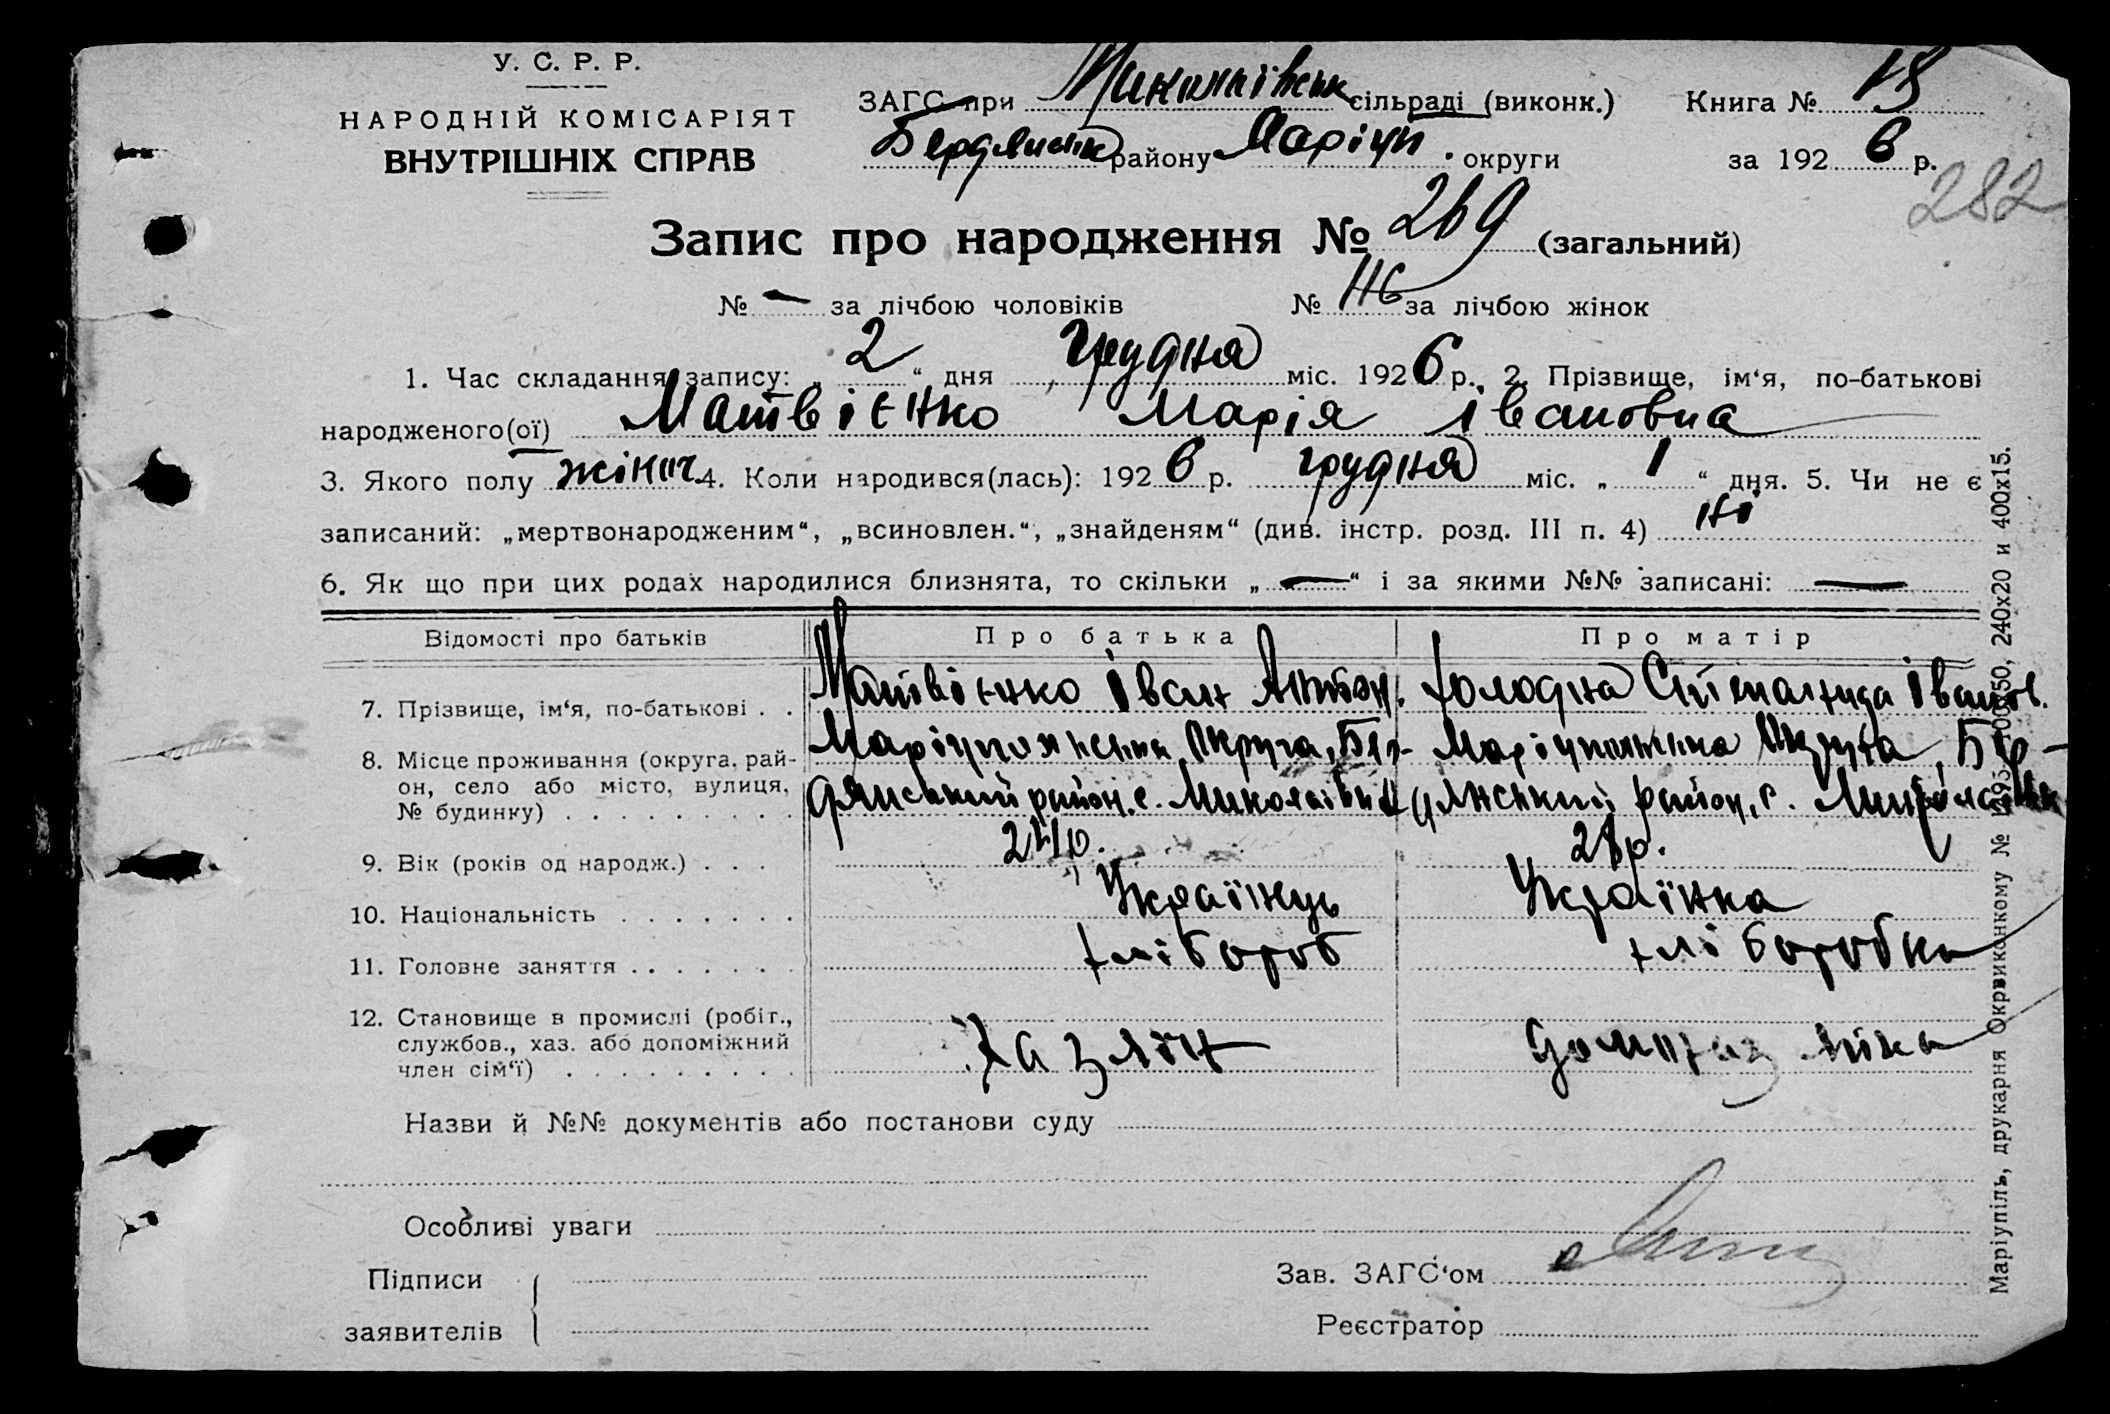 У. С. Р. Р.
НАРОДНІЙ КОМІСАРІЯТ
ВНУТРІШНІХ СПРАВ
ЗАГС при Миколаївськ сільраді (виконк.) Книга № 18
Бердянськ району Маріуп. округи за 1926 р.
282
Запис про народження № 269 (загальний)
№ — за лічбою чоловіків № 116 за лічбою жінок
1. Час складання запису: „ 2 “ дня грудня міс. 1926 р. 2. Прізвище, ім‘я, по-батькові
народженого(ої) Матвієнко Марія Івановна
3. Якого полу жіноч. 4. Коли народився(лась): 1926 р. грудня міс. „ 1 “ дня. 5. Чи не є
записаний: „мертвонародженим“, „всиновлен.“, „знайденям“ (див. інстр. розд. III п. 4) ні
6. Як що при цих родах народилися близнята, то скільки „ — “ і за якими №№ записані: —
Відомості про батьків Про батька Про матір
7. Прізвище, ім‘я, по-батькові . . Матвієнко Іван Антон. Холодна Степанида Іванов.
8. Місце проживання (округа, рай- Маріупольська Округа, Бер- Маріупольська Округа, Бер-
он, село або місто, вулиця, дянський район, с. Миколаївка дянський район, с.
№ будинку) . . . . . . . . .
9. Вік (років од народж.) . . . р. 28 р.
10. Національність . . . . . . . Українець Українка
11. Головне заняття . . . . . . . хлібороб хліборобка
12. Становище в промислі (робіт., Хазяїн домохазяйка
службов., хаз. або допоміжний
член сім‘ї) . . . . . . . . .
Назви й №№ документів або постанови суду
Особливі уваги
Підписи
заявителів
Зав. ЗАГС‘ом
Реєстратор
Маріупіль, друкарня Окрвиконкому № 240х20 и 400х15.